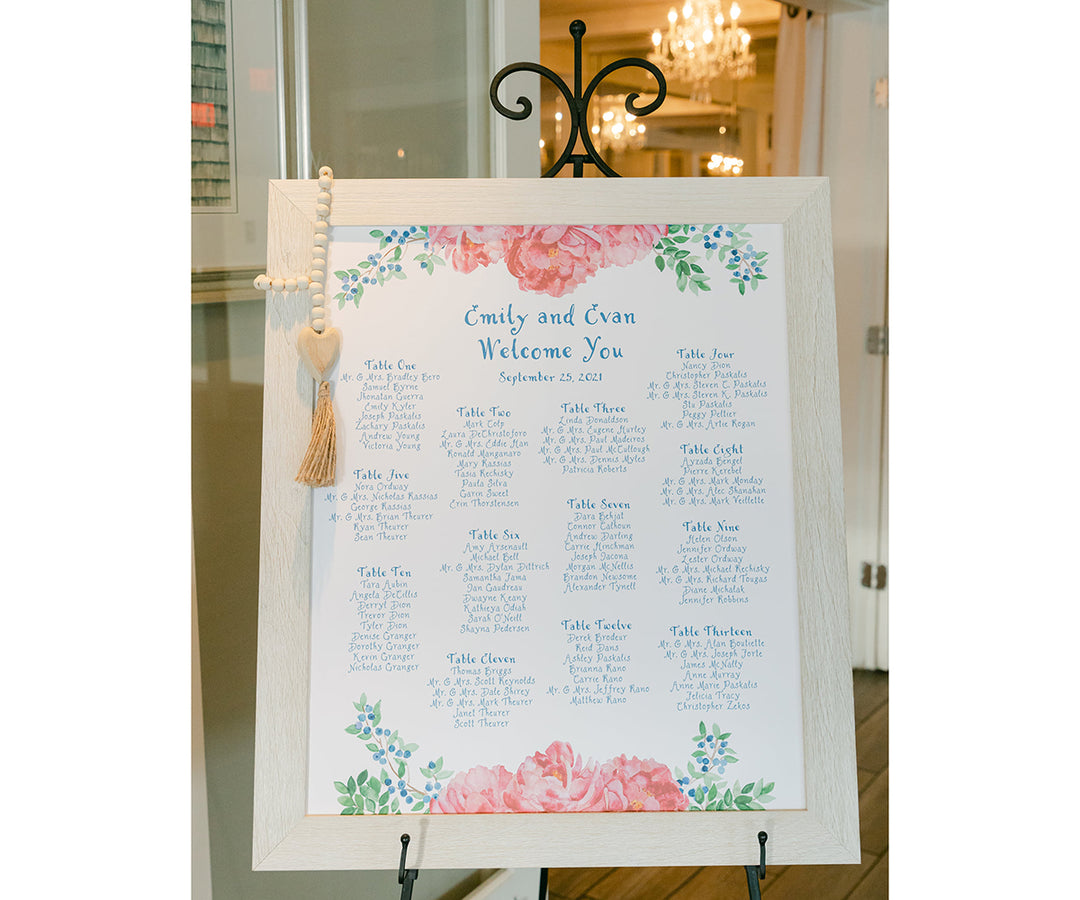 Emily and Evan
Welcome You
September 25, 2021
Table One
Mr. & Mrs. Bradley Bero
Samuel Byrne
Jhonatan Guerra
Emily Kyler
Joseph Paskalis
Zachary Paskalis
Andrew Young
Victoria Young
Table Two
Mark Colp
Laura DeChristoforo
Mr. & Mrs. Eddie Han
Ronald Manganaro
Mary Kassias
Tasia Rechisky
Paula Silva
Garin Sweet
Erin Thorstensen
Table Three
Linda Donaldson
Mr. & Mrs. Eugene Hurley
Mr. & Mrs. Paul Madeiros
Mr. & Mrs. Paul McCullough
Mr. & Mrs. Dennis Myles
Patricia Roberts
Table Four
Nancy Dion
Christopher Paskalis
Mr. & Mrs. Steven C. Paskalis
Mr. & Mrs. Steven K. Paskalis
Stu Paskalis
Peggy Peltier
Mr. & Mrs. Artie Rogan
Table Five
Nora Ordway
Mr. & Mrs. Nicholas Kassias
George Kassias
Mr. & Mrs. Brian Theurer
Ryan Theurer
Sean Theurer
Table Six
Amy Arsenault
Michael Bell
Mr. & Mrs. Dylan Dittrich
Samantha Fama
Jan Gaudreau
Dwayne Keany
Kathleya Odiah
Sarah O'Neill
Shayna Pedersen
Table Seven
Dara Behjat
Connor Calhoun
Andrew Darling
Carrie Hinchman
Joseph Jacona
Morgan McNellis
Brandon Newsome
Alexander Tynell
Table Eight
Ayzada Bengel
Pierre Kerebel
Mr. & Mrs. Mark Monday
Mr. & Mrs. Alec Shanahan
Mr. & Mrs. Mark Veillette
Table Nine
Helen Olson
Jennifer Ordway
Lester Ordway
Mr. & Mrs. Michael Rechisky
Mr. & Mrs. Richard Tougas
Diane Michalak
Jennifer Robbins
Table Ten
Tara Aubin
Angela DeCillis
Derryl Dion
Trevor Dion
Tyler Dion
Denise Granger
Dorothy Granger
Kevin Granger
Nicholas Granger
Table Eleven
Thomas Briggs
Mr. & Mrs. Scott Reynolds
Mr. & Mrs. Dale Shirey
Mr. & Mrs. Mark Theurer
Janet Theurer
Scott Theurer
Table Twelve
Derek Brodeur
Reid Dans
Ashley Paskalis
Brianna Rano
Carrie Rano
Mr. & Mrs. Jeffrey Rano
Matthew Rano
Table Thirteen
Mr. & Mrs. Alan Boutiette
Mr. & Mrs. Joseph Forte
James McNally
Anne Murray
Anne Marie Paskalis
Felicia Tracy
Christopher Zekos